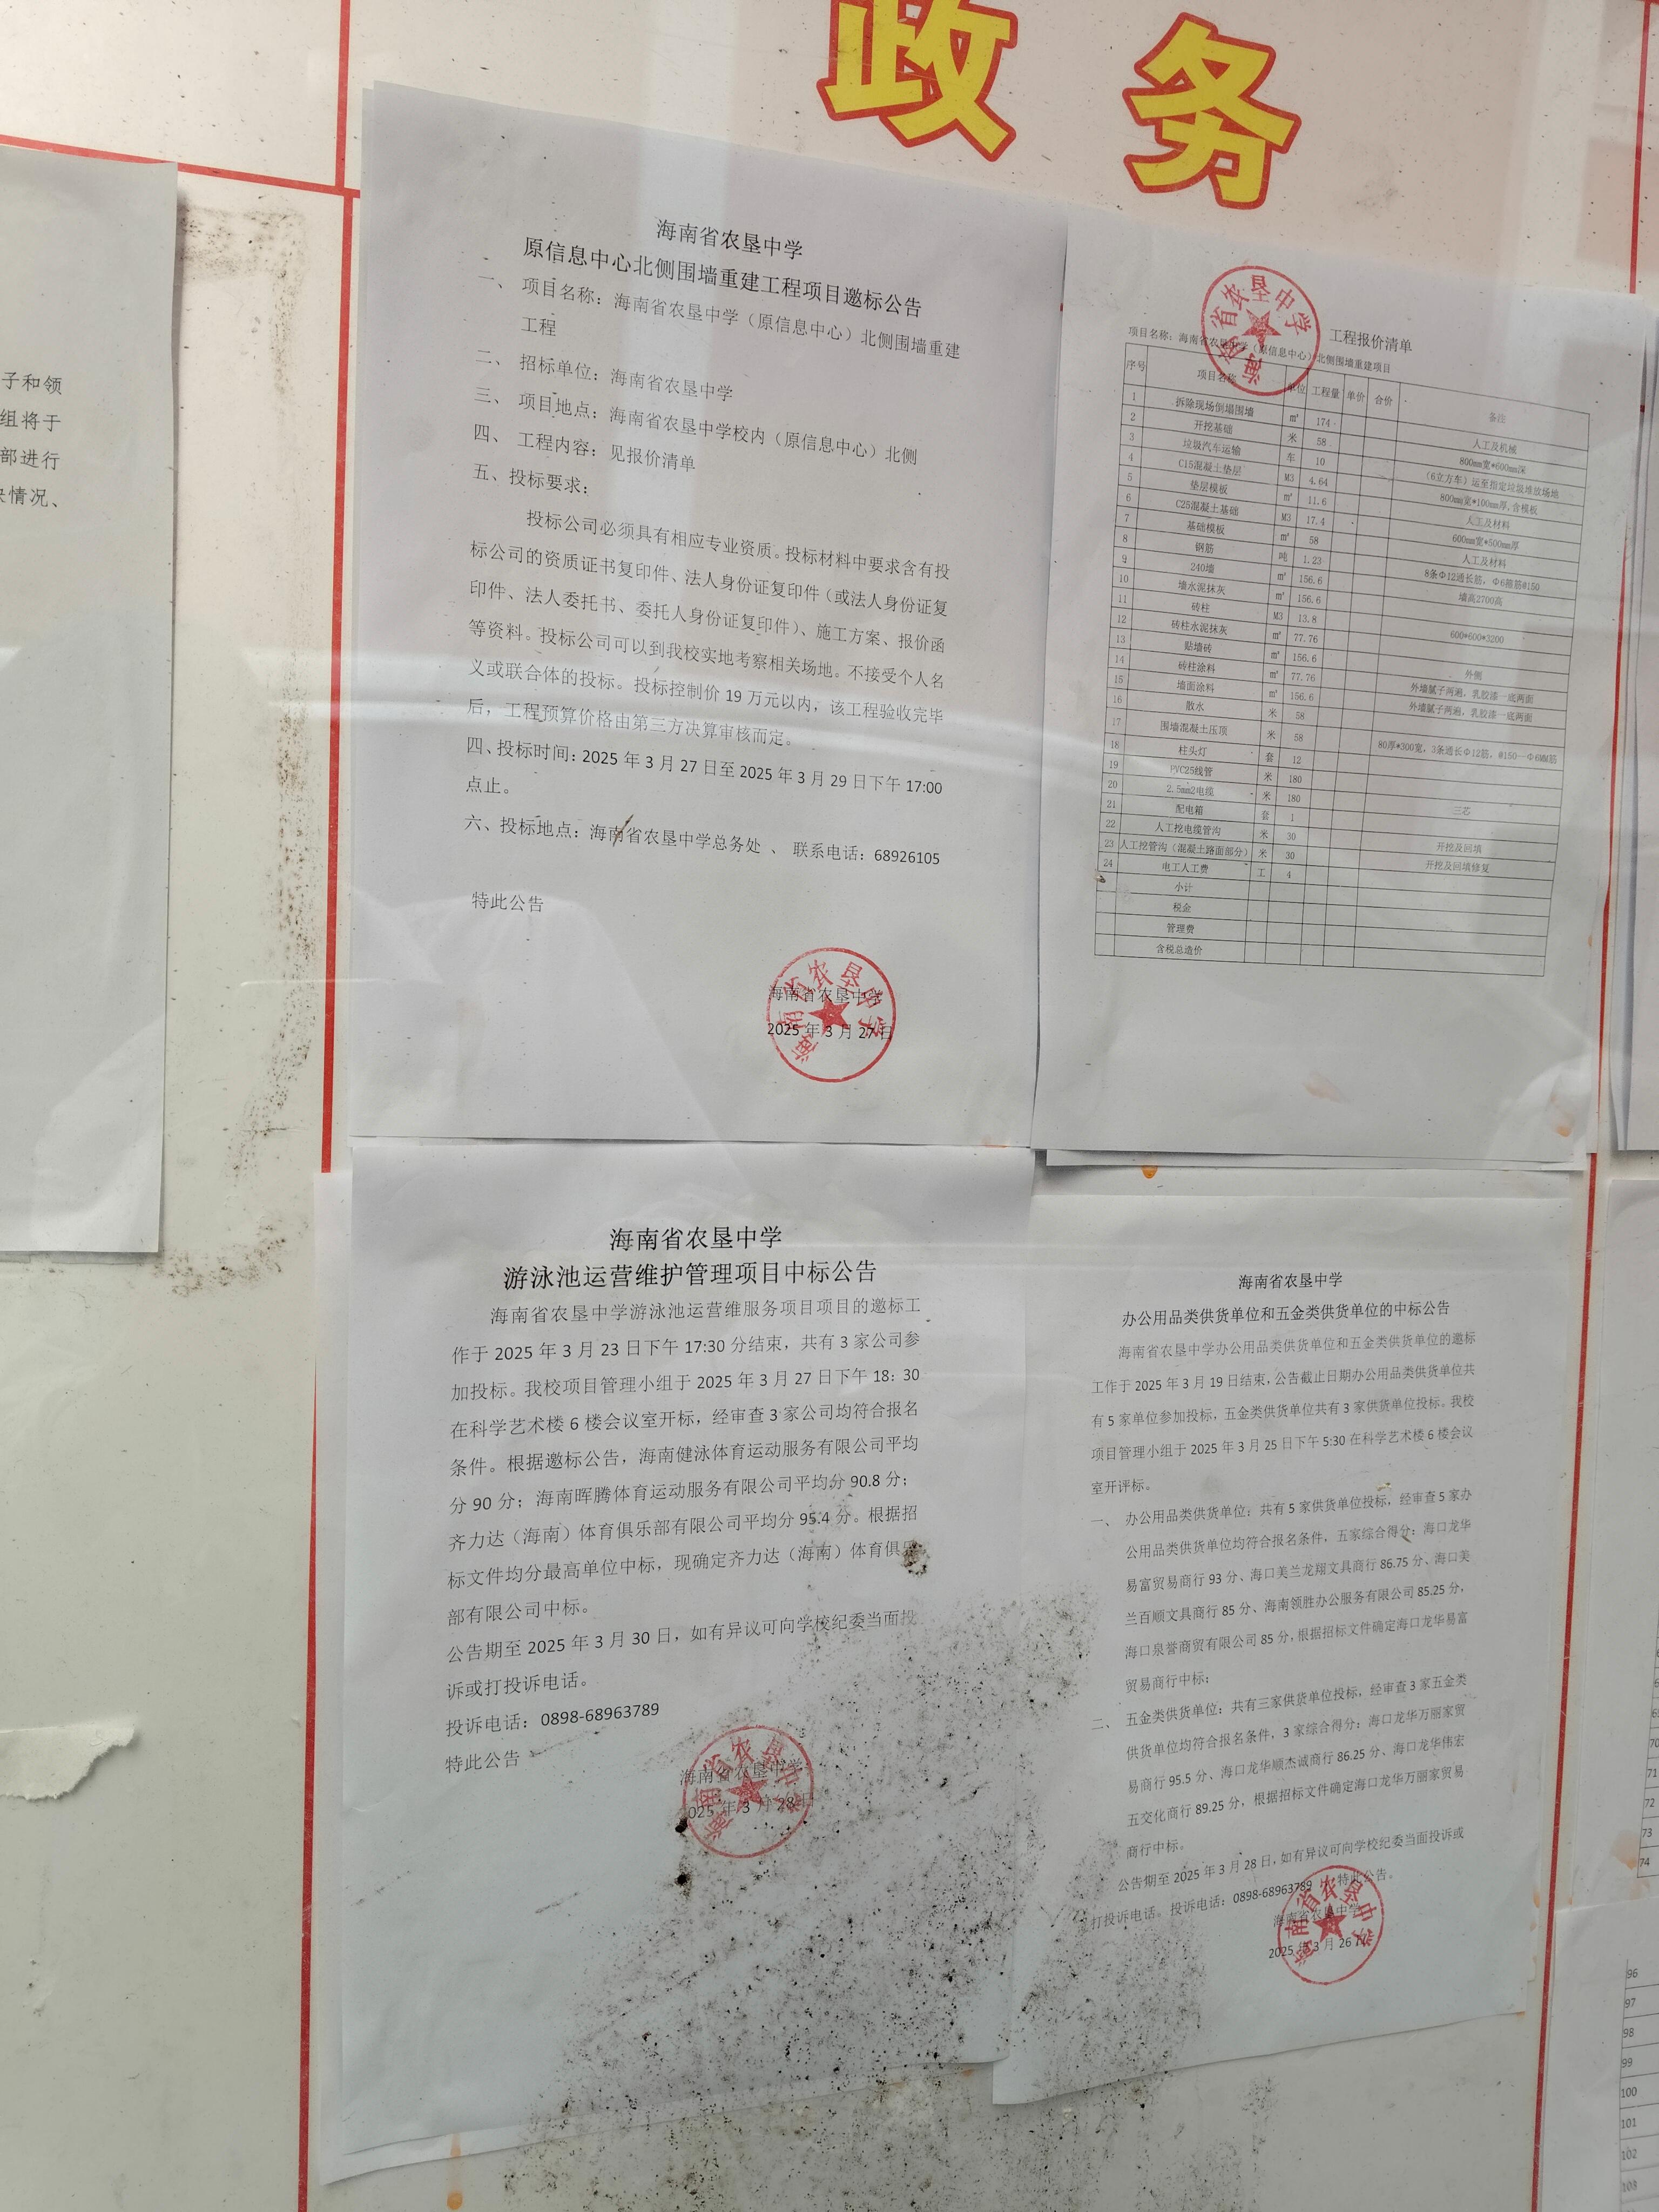 政务
子和领
组将于
部进行
情况、
海南省农垦中学
原信息中心北侧围墙重建工程项目邀标公告
一、项目名称：海南省农垦中学（原信息中心）北侧围墙重建
工程
二、招标单位：海南省农垦中学
三、项目地点：海南省农垦中学校内（原信息中心）北侧
四、工程内容：见报价清单
五、投标要求：
投标公司必须具有相应专业资质。投标材料中要求含有投
标公司的资质证书复印件、法人身份证复印件（或法人身份证复
印件、法人委托书、委托人身份证复印件）、施工方案、报价函
等资料。投标公司可以到我校实地考察相关场地。不接受个人名
义或联合体的投标。投标控制价 19 万元以内，该工程验收完毕
后，工程预算价格由第三方决算审核而定。
四、投标时间：2025 年 3 月 27 日至 2025 年 3 月 29 日下午 17:00
点止。
六、投标地点：海南省农垦中学总务处 、 联系电话：68926105
特此公告
海南省农垦中学
2025 年 3 月 27 日
海南省农垦中学
工程报价清单
项目名称：海南省农垦中学（原信息中心）北侧围墙重建项目
序号 项目名称 单位 工程量 单价 合价 备注
1 拆除现场倒塌围墙 m² 174 人工及机械
2 开挖基础 米 58 800mm宽*600mm深
3 垃圾汽车运输 车 10 （6立方车）运至指定垃圾堆放场地
4 C15混凝土垫层 M3 4.64 800mm宽*100mm厚,含模板
5 垫层模板 m² 11.6 人工及材料
6 C25混凝土基础 M3 17.4 600mm宽*500mm厚
7 基础模板 m² 58 人工及材料
8 钢筋 吨 1.23 8条Φ12通长筋，Φ6箍筋@150
9 240墙 m² 156.6 墙高2700高
10 墙水泥抹灰 m² 156.6
11 砖柱 M3 13.8 600*600*3200
12 砖柱水泥抹灰 m² 77.76
13 贴墙砖 m² 156.6 外侧
14 砖柱涂料 m² 77.76 外墙腻子两遍，乳胶漆一底两面
15 墙面涂料 m² 156.6 外墙腻子两遍，乳胶漆一底两面
16 散水 米 58
17 围墙混凝土压顶 米 58 80厚*300宽，3条通长Φ12筋，@150--Φ6MM筋
18 柱头灯 套 12
19 PVC25线管 米 180
20 2.5mm2电缆 米 180 三芯
21 配电箱 套 1
22 人工挖电缆管沟 米 30 开挖及回填
23 人工挖管沟（混凝土路面部分） 米 30 开挖及回填修复
24 电工人工费 工 4
小计
税金
管理费
含税总造价
海南省农垦中学
海南省农垦中学
游泳池运营维护管理项目中标公告
海南省农垦中学游泳池运营维服务项目项目的邀标工
作于 2025 年 3 月 23 日下午 17:30 分结束，共有 3 家公司参
加投标。我校项目管理小组于 2025 年 3 月 27 日下午 18：30
在科学艺术楼 6 楼会议室开标，经审查 3 家公司均符合报名
条件。根据邀标公告，海南健泳体育运动服务有限公司平均
分 90 分；海南晖腾体育运动服务有限公司平均分 90.8 分；
齐力达（海南）体育俱乐部有限公司平均分 95.4 分。根据招
标文件均分最高单位中标，现确定齐力达（海南）体育俱乐
部有限公司中标。
公告期至 2025 年 3 月 30 日，如有异议可向学校纪委当面投
诉或打投诉电话。
投诉电话：0898-68963789
特此公告
海南省农垦中学
2025 年 3 月 28 日
海南省农垦中学
海南省农垦中学
办公用品类供货单位和五金类供货单位的中标公告
海南省农垦中学办公用品类供货单位和五金类供货单位的邀标
工作于 2025 年 3 月 19 日结束，公告截止日期办公用品类供货单位共
有 5 家单位参加投标，五金类供货单位共有 3 家供货单位投标。我校
项目管理小组于 2025 年 3 月 25 日下午 5:30 在科学艺术楼 6 楼会议
室开评标。
一、办公用品类供货单位：共有 5 家供货单位投标，经审查 5 家办
公用品类供货单位均符合报名条件，五家综合得分：海口龙华
易富贸易商行 93 分、海口美兰龙翔文具商行 86.75 分、海口美
兰百顺文具商行 85 分、海南领胜办公服务有限公司 85.25 分，
海口泉誉商贸有限公司 85 分，根据招标文件确定海口龙华易富
贸易商行中标；
二、五金类供货单位：共有三家供货单位投标，经审查 3 家五金类
供货单位均符合报名条件，3 家综合得分：海口龙华万丽家贸
易商行 95.5 分、海口龙华顺杰诚商行 86.25 分、海口龙华伟宏
五交化商行 89.25 分，根据招标文件确定海口龙华万丽家贸易
商行中标。
公告期至 2025 年 3 月 28 日，如有异议可向学校纪委当面投诉或
打投诉电话。投诉电话：0898-68963789 特此公告。
海南省农垦中学
2025 年 3 月 26 日
海南省农垦中学
70
71
72
73
74
96
97
98
99
100
101
102
103